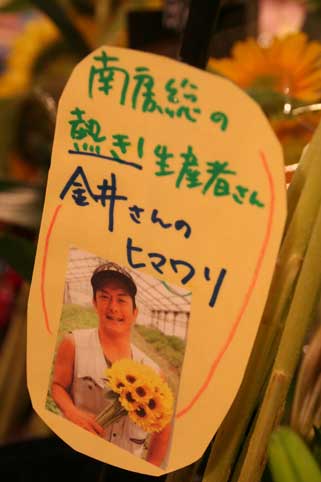 南房総の
熱き生産者さん
金井さんの
ヒマワリ